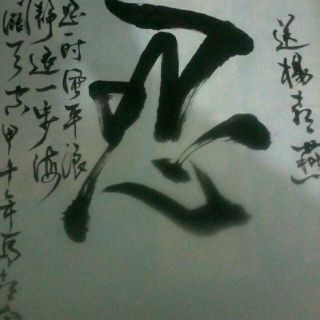 送楊燕
忍
忍一时風平浪
静退一步海
阔天空甲午年